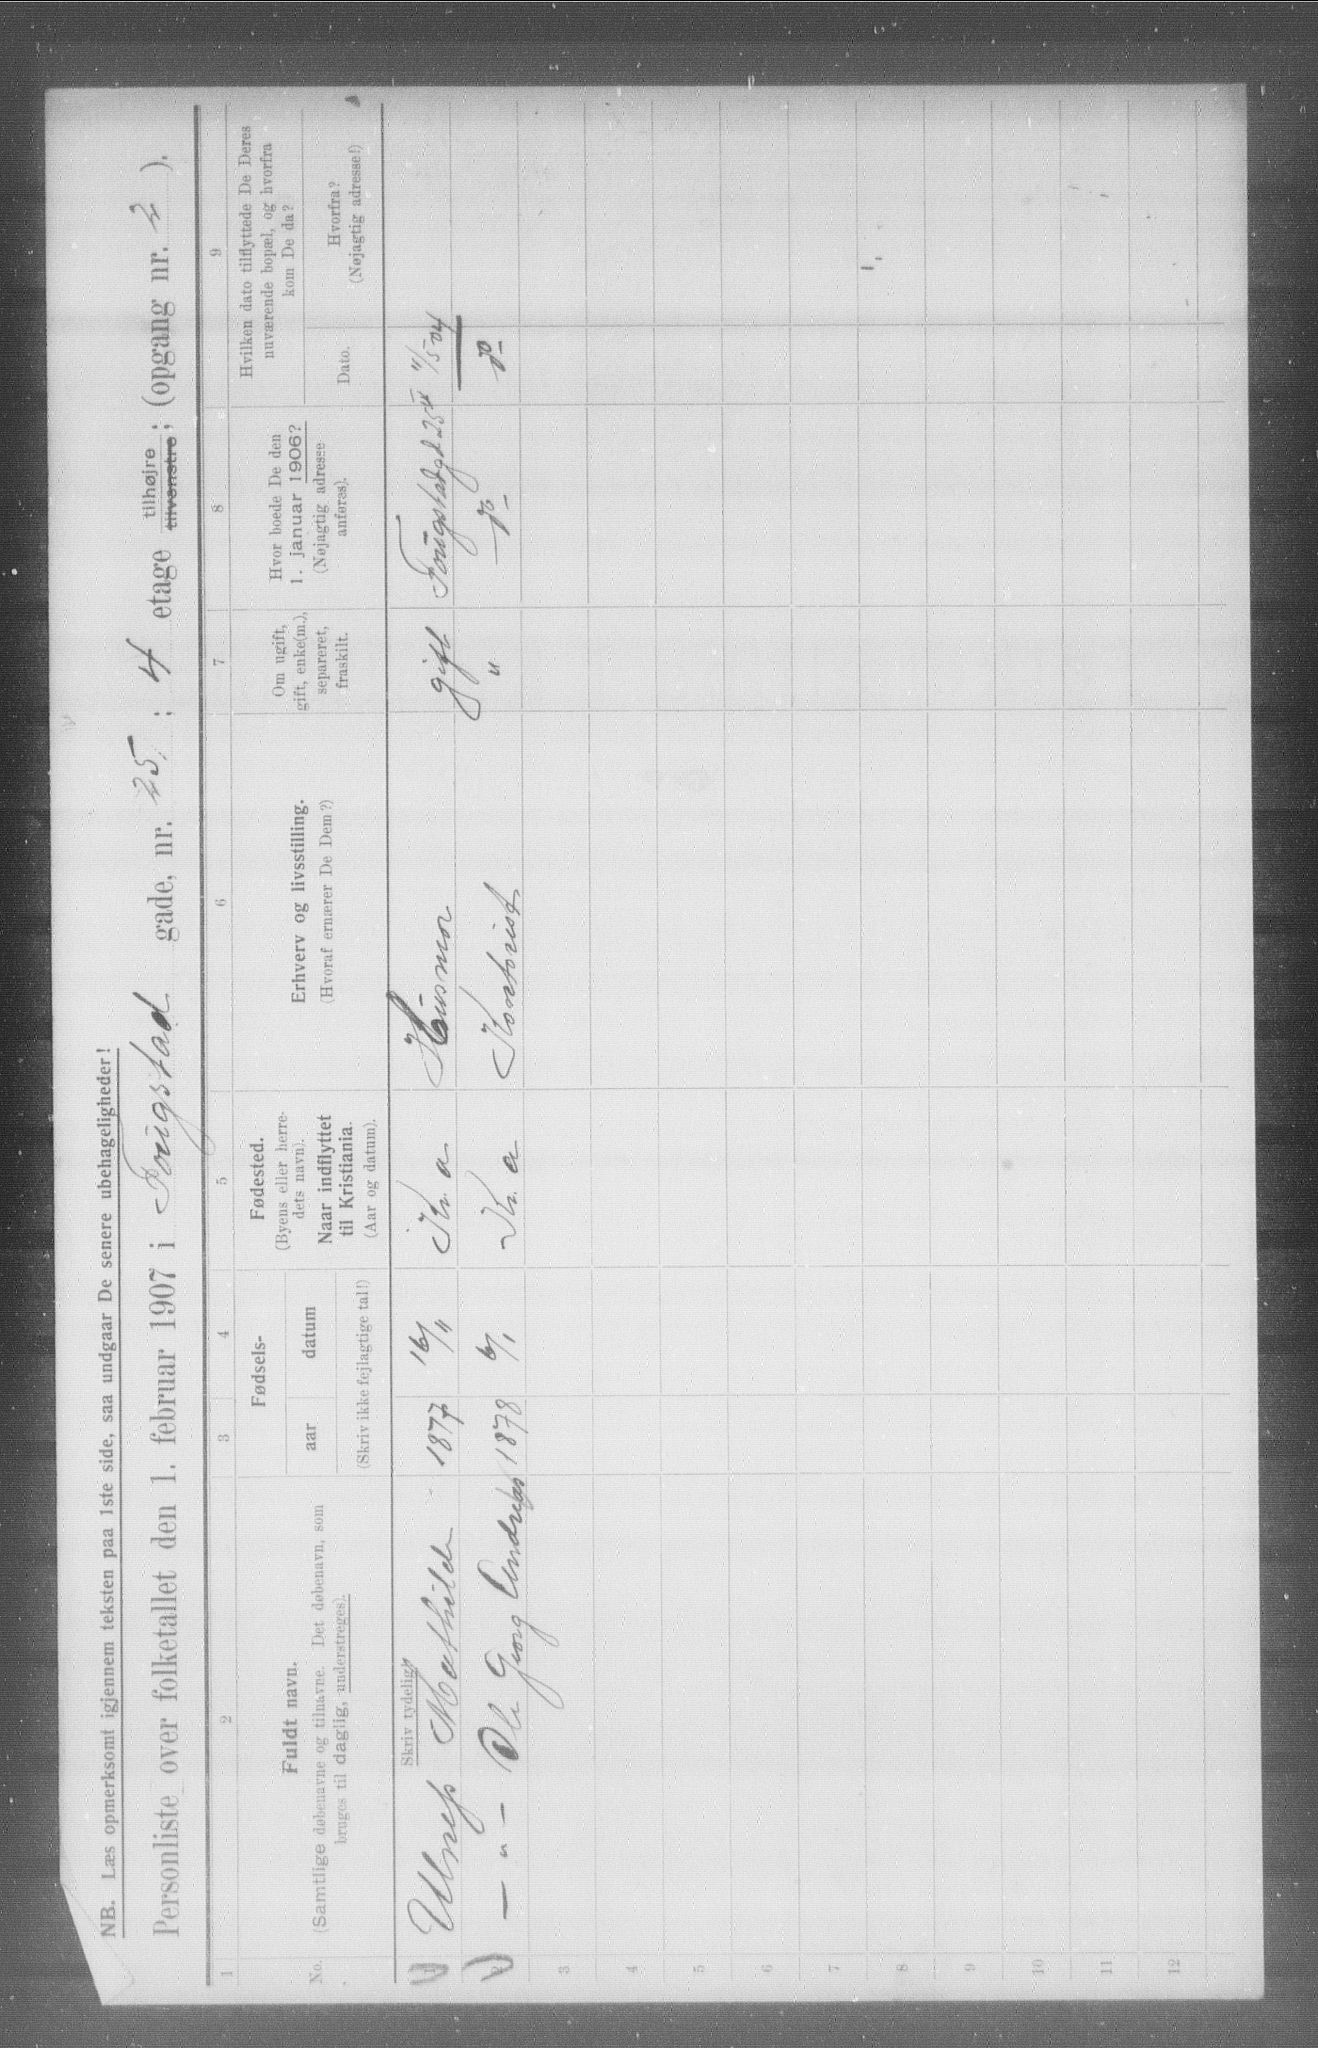 NB. Læs opmerksomt igjennem teksten paa 1ste side, saa undgaar De senere ubehageligheder!
Personliste over folketallet den 1. februar 1907 i Fougstad gade, nr. 25 ; 4 etage tilhøjre tilvenstre ; (opgang nr. 2 ).
1 2 3 4 5 6 7 8 9
No.
Fuldt navn.
(Samtlige døbenavne og tilnavne. Det døbenavn, som
bruges til daglig, understreges).
Fødsels-
aar datum
(Skriv ikke fejlagtige tal!)
Fødested.
(Byens eller herre-
dets navn).
Naar indflyttet
til Kristiania.
(Aar og datum).
Erhverv og livsstilling.
(Hvoraf ernærer De Dem?)
Om ugift,
gift, enke(m.),
separeret,
fraskilt.
Hvor boede De den
1. januar 1906?
(Nøjagtig adresse
anføres).
Hvilken dato tilflyttede De Deres
nuværende bopæl, og hvorfra
kom De da?
Dato.
Hvorfra?
(Nøjagtig adresse!)
Skriv tydelig!
1 Ulness Mathilde 1877 16/11 Kr.a Husmor gift Fougstadgd 25 II 11/5 04
2 — " — Ole Georg Andreas 1878 6/1 Kr.a Kontorist " do do
3
4
5
6
7
8
9
10
11
12